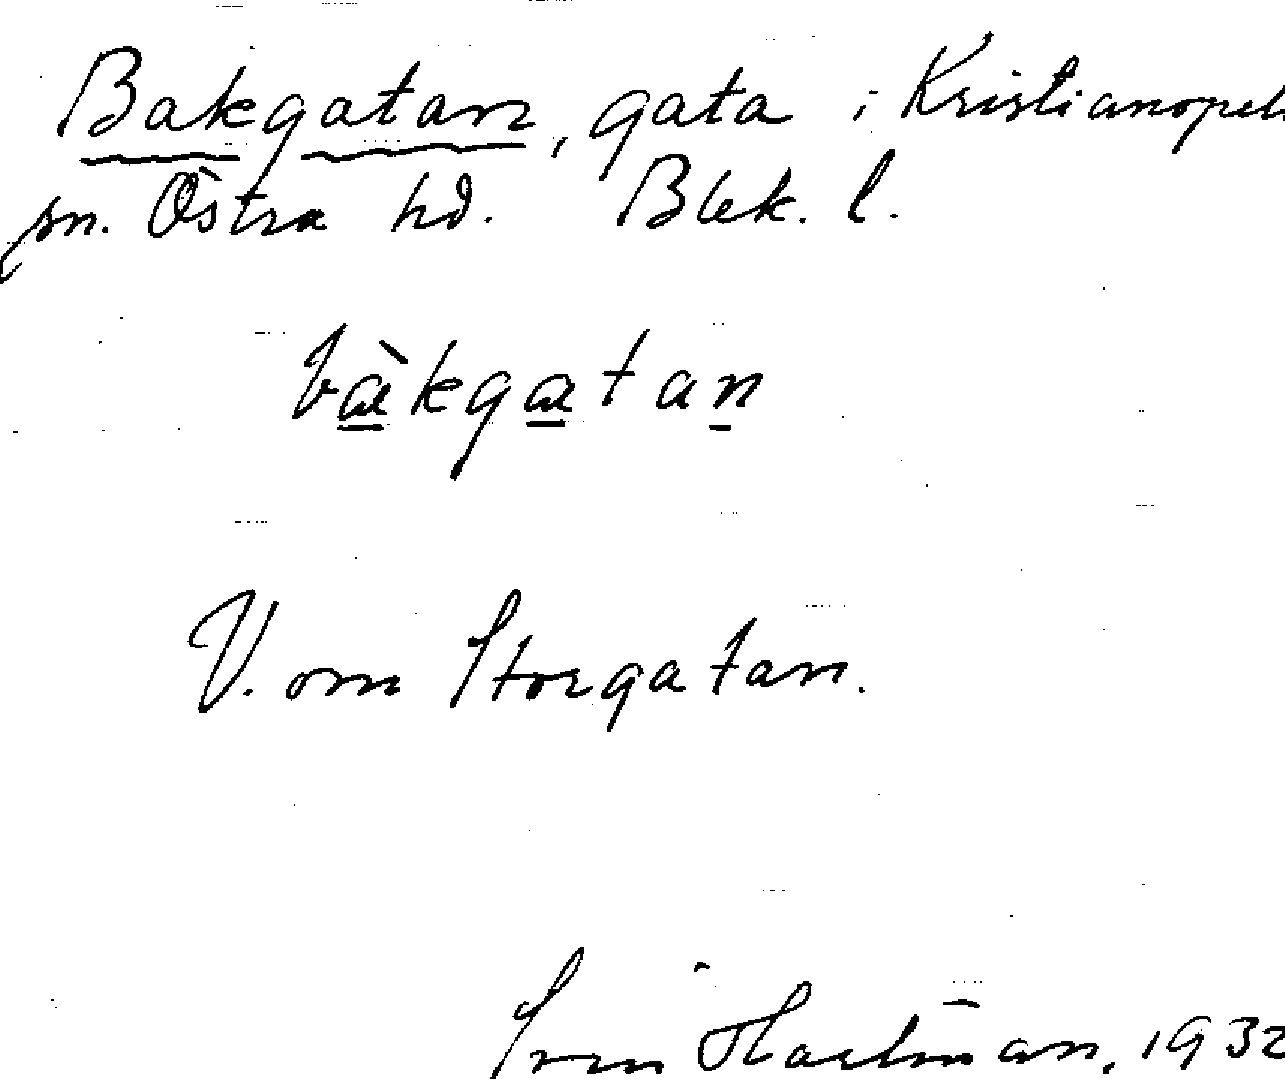 Bakgatan, gata i Kristianopels
sn. Östra hd. Blek. l.
bàkgatan
V. om Storgatan.
Sven Hartman, 1932